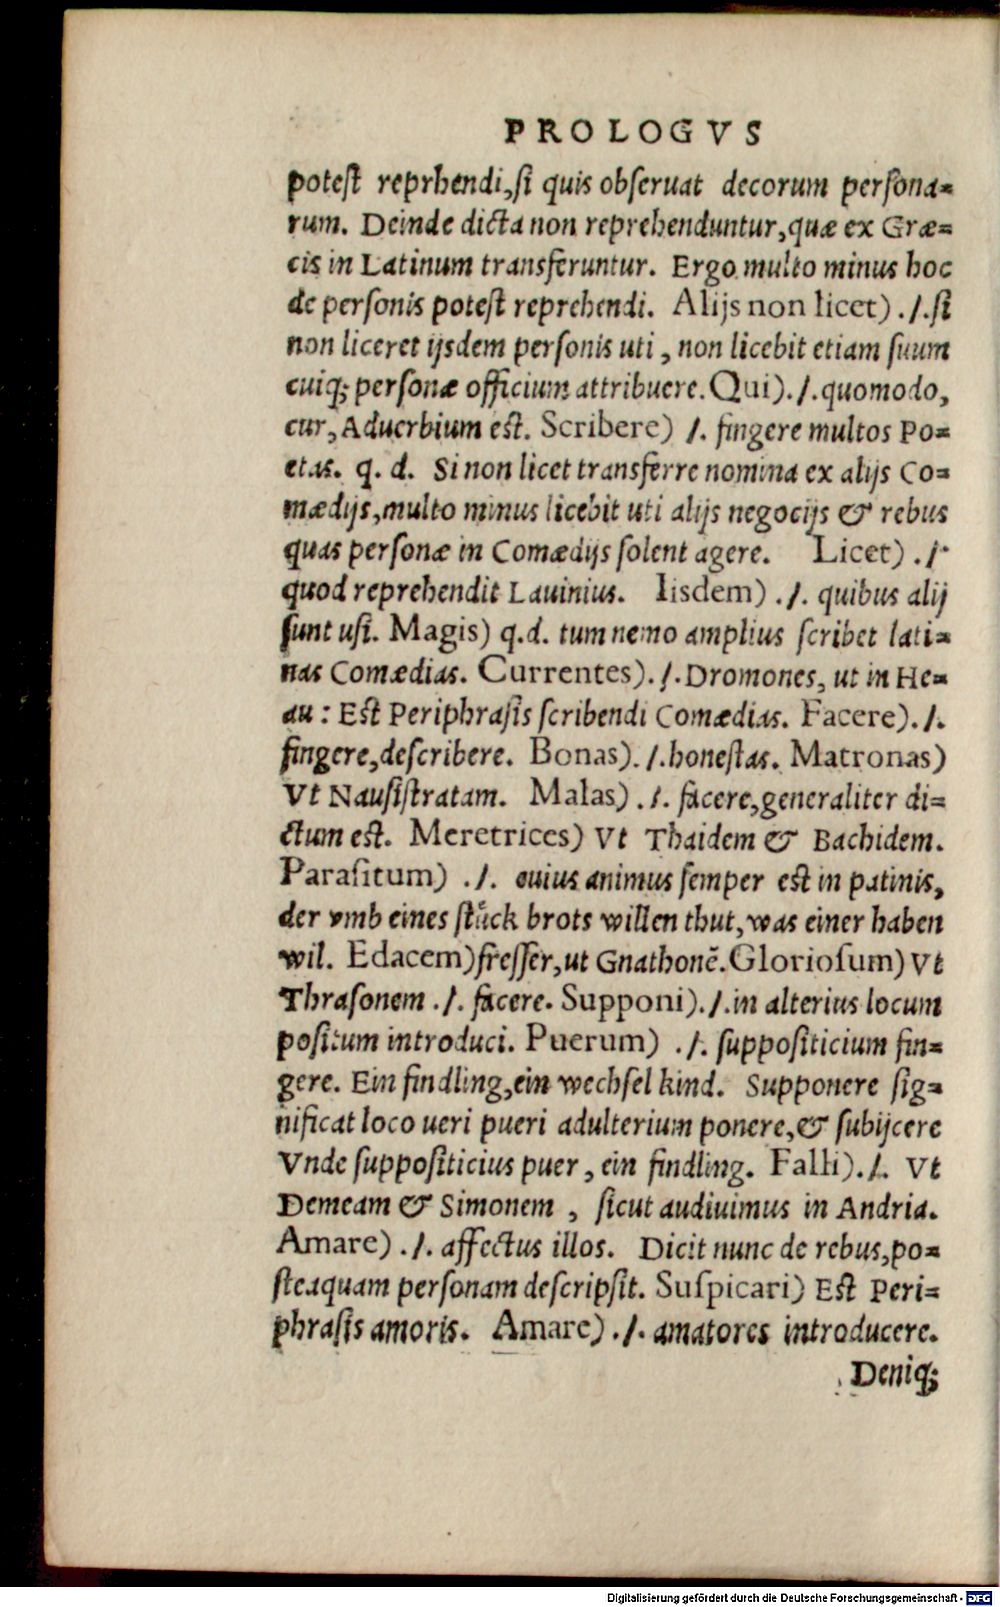 PROLOGVS
potest reprhendi,si quis obseruat decorum persona=
rum. Deinde dicta non reprehenduntur,quæ ex Græ=
cis in Latinum transferuntur. Ergo multo minus hoc
de personis potest reprehendi. Alijs non licet) ./.si
non liceret ijsdem personis uti, non licebit etiam suum
cuiq; personæ officium attribuere. Qui)./.quomodo,
cur, Aduerbium est. Scribere) /. fingere multos Po=
etas. q. d. Si non licet transferre nomina ex alijs Co=
mædijs,multo minus licebit uti alijs negocijs & rebus
quas personæ in Comædijs solent agere. Licet) ./.
quod reprehendit Lauinius. Iisdem) ./. quibus alij
sunt usi. Magis) q.d. tum nemo amplius scribet lati=
nas Comædias. Currentes)./.Dromones, ut in He=
au: Est Periphrasis scribendi Comædias. Facere)./.
fingere,describere. Bonas)./.honestas. Matronas)
Vt Nausistratam. Malas) ./. facere,generaliter di=
ctum est. Meretrices) Vt Thaidem & Bachidem.
Parasitum) ./. cuius animus semper est in patinis,
der vmb eines stuͤck brots willen thut,was einer haben
wil. Edacem)fresser,ut Gnathonẽ.Gloriosum) Vt
Thrasonem ./. facere. Supponi)./.in alterius locum
positum introduci. Puerum) ./. suppositicium fin=
gere. Ein findling,ein wechsel kind. Supponere sig=
nificat loco ueri pueri adulterium ponere,& subijcere
Vnde suppositicius puer, ein findling. Falli)./. Vt
Demeam & Simonem, sicut audiuimus in Andria.
Amare) ./. affectus illos. Dicit nunc de rebus,po=
steaquam personam descripsit. Suspicari) Est Peri=
phrasis amoris. Amare) ./. amatores introducere.
Deniq;
Digitalisierung gefördert durch die Deutsche Forschungsgemeinschaft - DFG